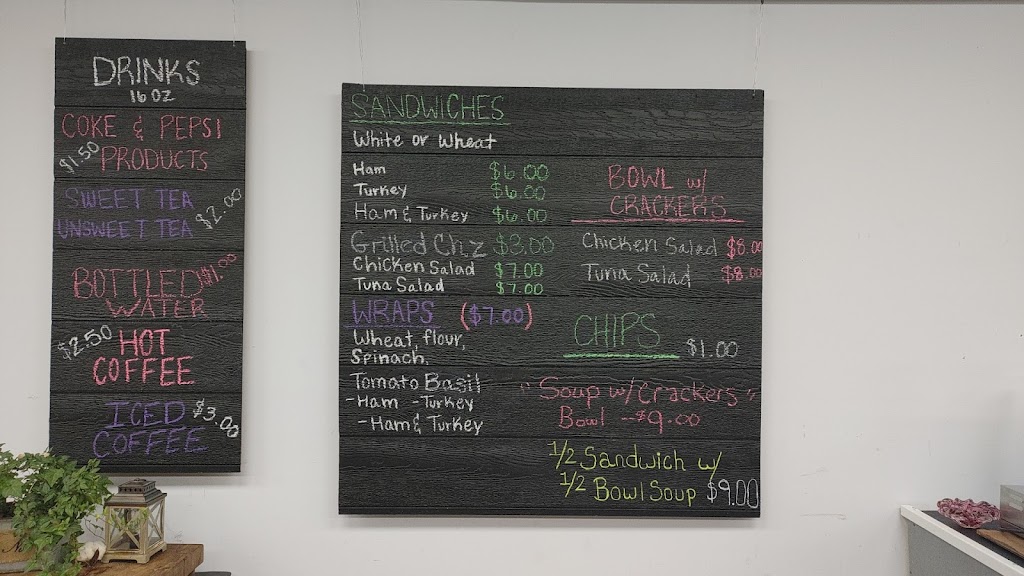 DRINKS
16 OZ
COKE & PEPSI
$1.50 PRODUCTS
SWEET TEA
UNSWEET TEA $2.00
BOTTLED $1.00
WATER
$2.50 HOT
COFFEE
ICED $3.00
COFFEE
SANDWICHES
White or Wheat
Ham $6.00
Turkey $6.00
Ham & Turkey $6.00
Grilled Chz $3.00
Chicken Salad $7.00
Tuna Salad $7.00
WRAPS ($7.00)
Wheat, flour,
Spinach,
Tomato Basil
-Ham -Turkey
-Ham & Turkey
BOWL w/
CRACKERS
Chicken Salad $8.00
Tuna Salad $8.00
CHIPS $1.00
"Soup w/Crackers"
Bowl -$9.00
1/2 Sandwich w/
1/2 Bowl Soup $9.00